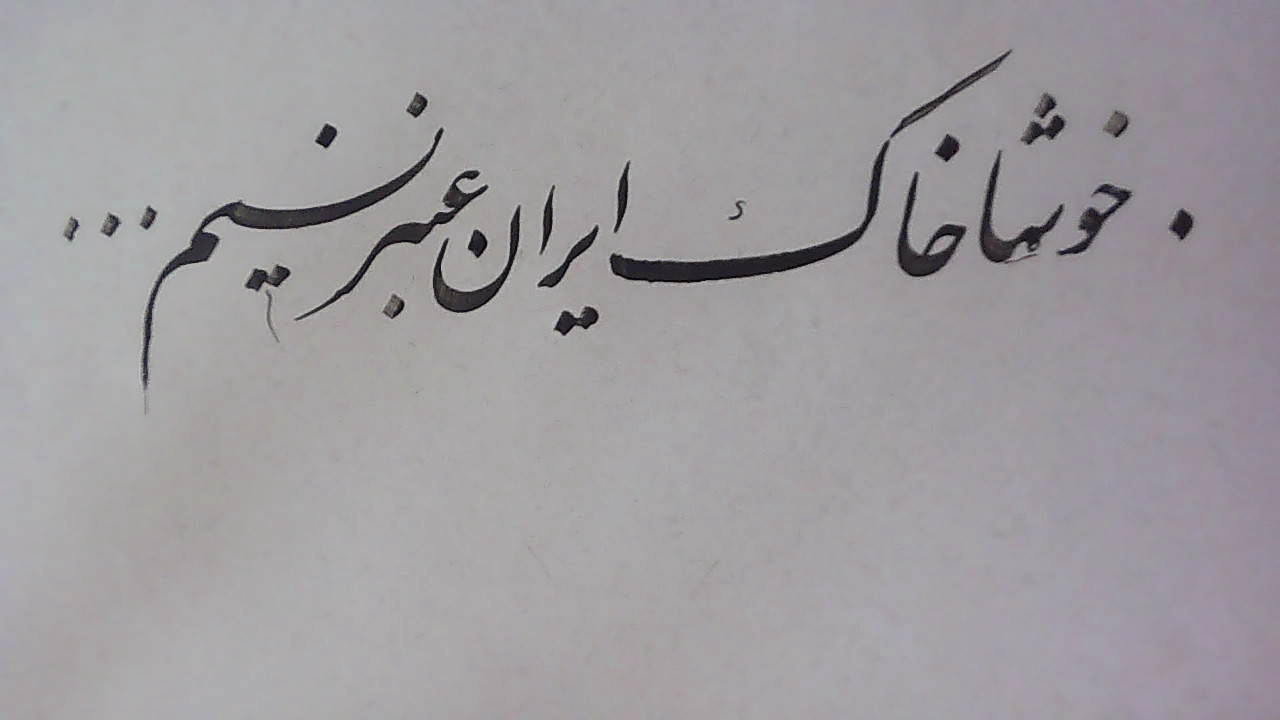 . خوشا خاک ایران عنبر نسیم ...